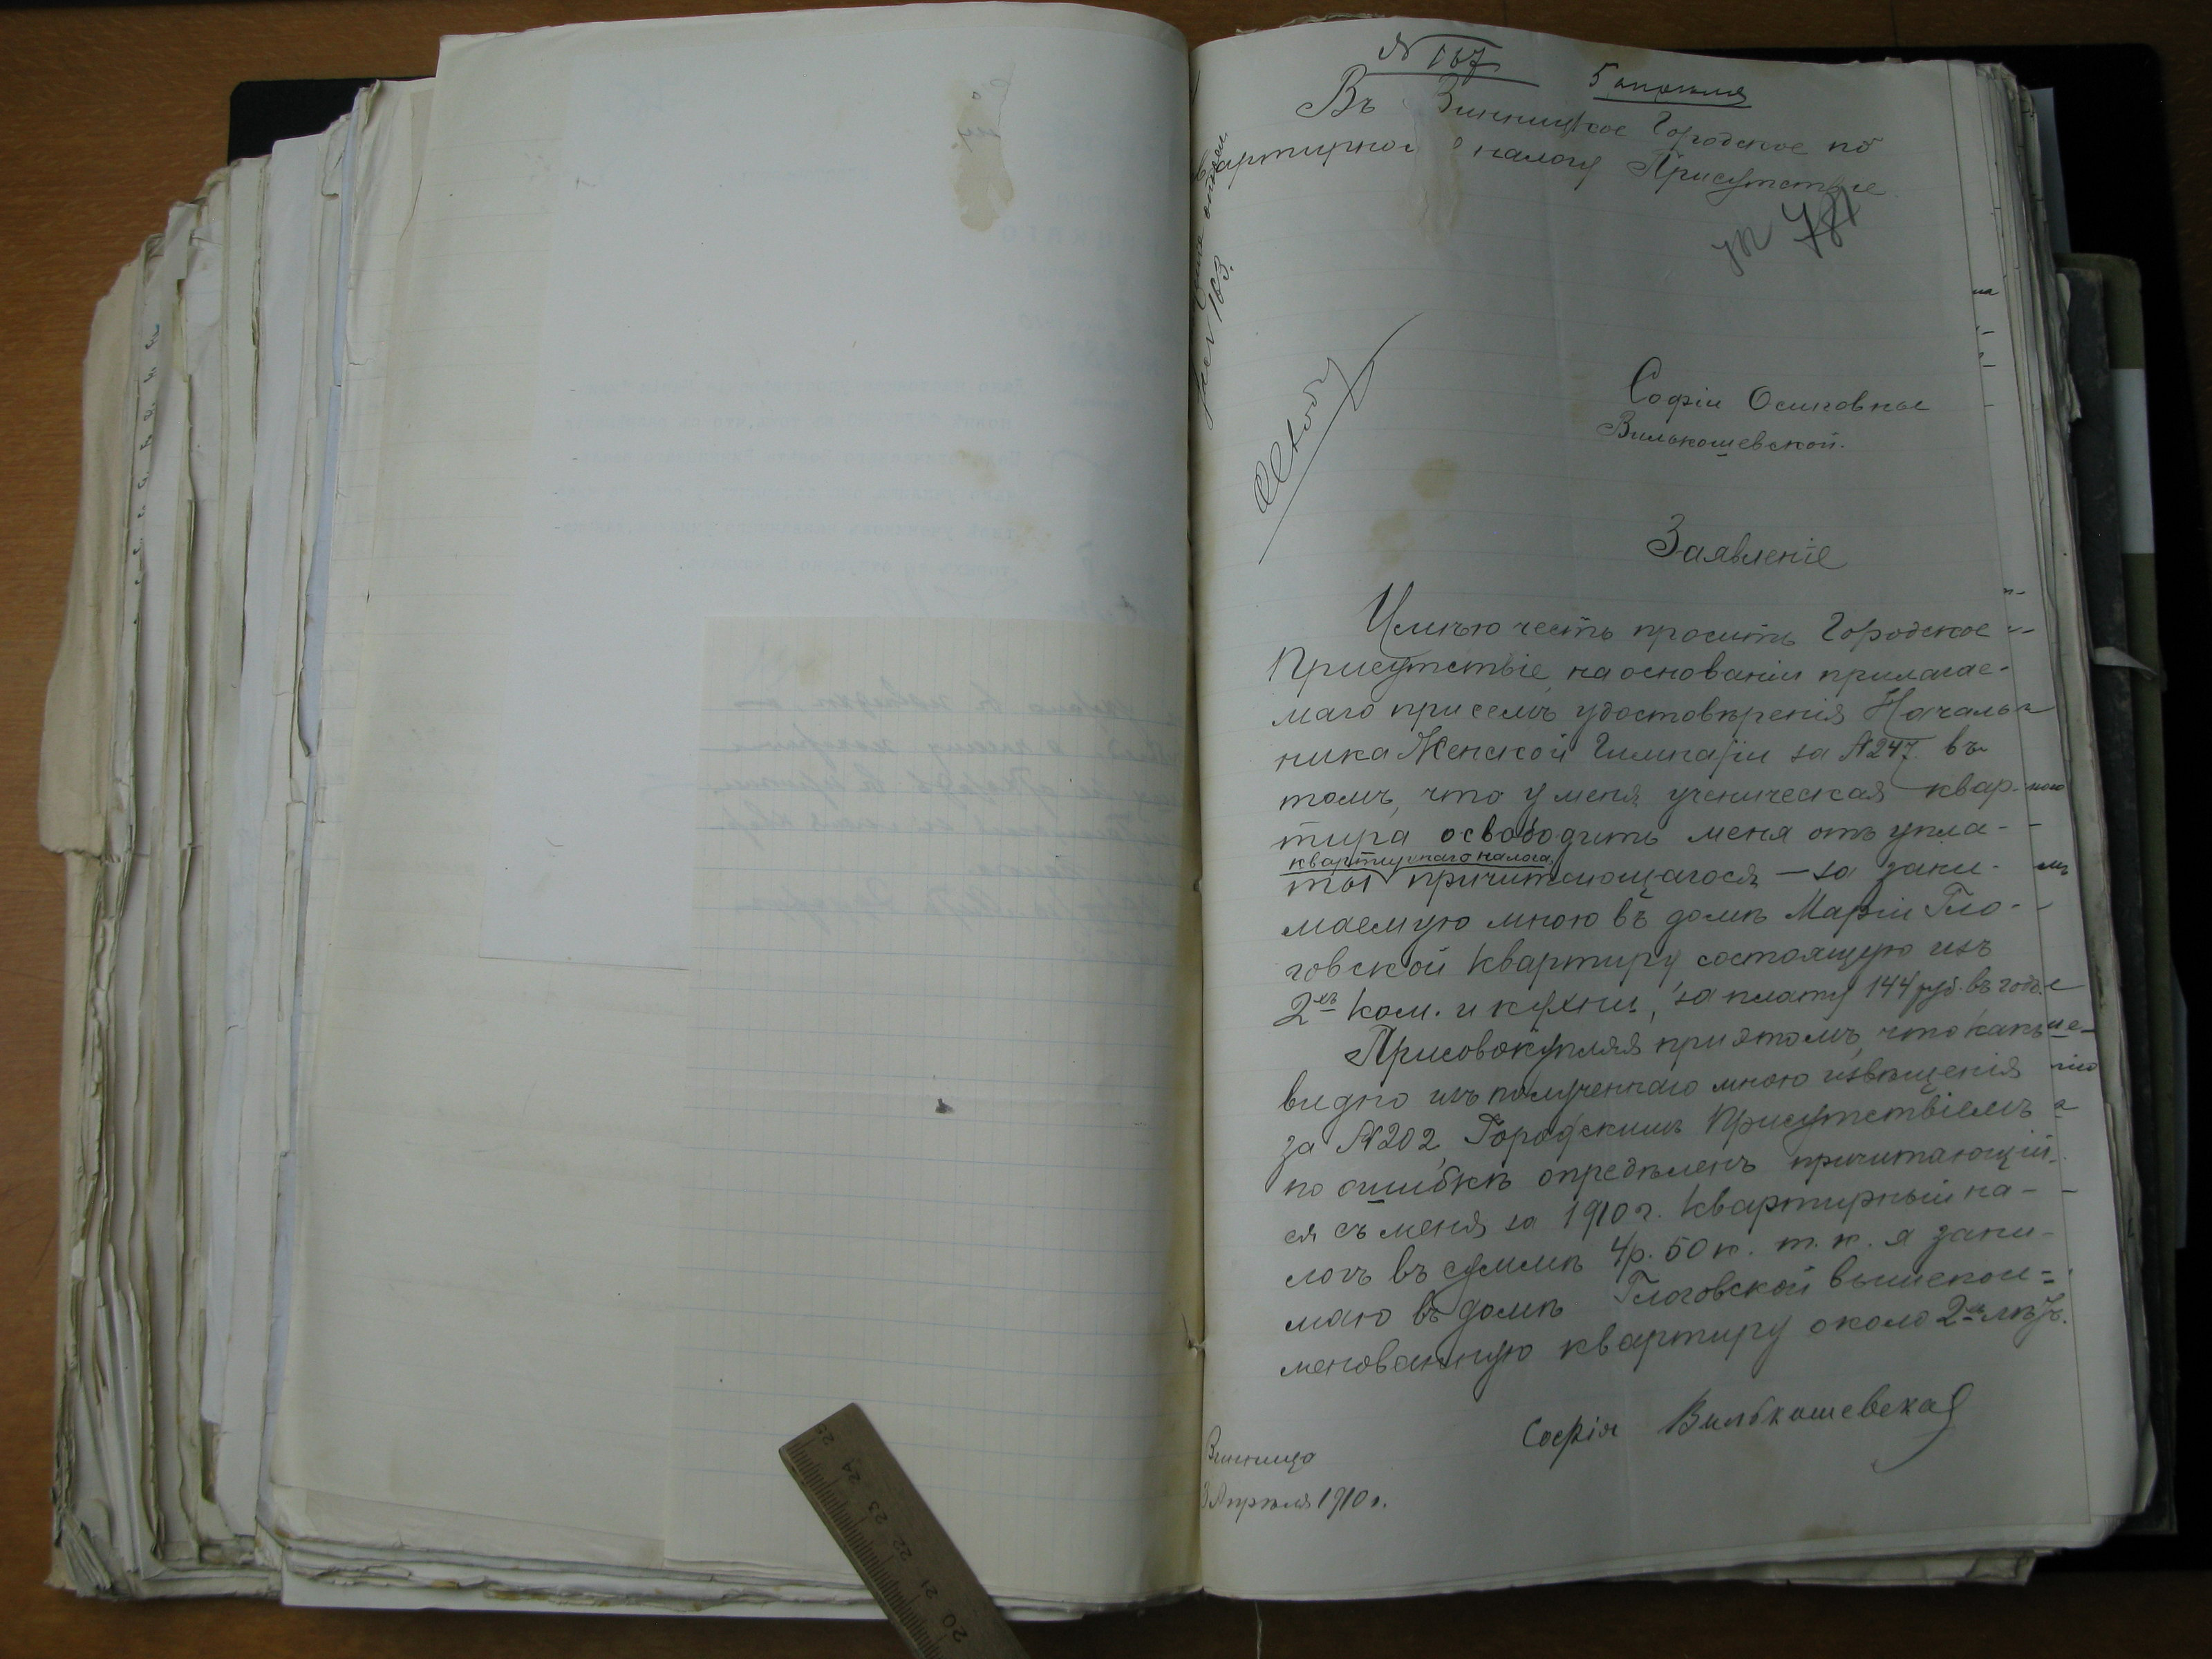 № 167
5 апреля
Въ Винницкое Городское по
квартирному налогу Присутствіе
781
Софіи Осиповны
Вилькошевской.
Заявленіе
Имѣю честь просить Городское
Присутствіе, на основаніи прилагае-
маго при семъ удостовѣренія Началь-
ника Женской Гимназіи за №247 въ
томъ, что у меня ученическая квар-
тира освободить меня отъ упла-
квартирнаго налога,
ты причитающагося – за зани-
маемую мною въ домѣ Маріи Гло-
говской квартиру состоящую изъ
2хъ ком. и кухни, за плату 144 руб. въ годъ.
Присовокупляя при этомъ, что какъ
видно изъ полученнаго мною извѣщенія
за №202, Городскимъ Присутствіемъ
по ошибкѣ опредѣленъ причитающій-
ся съ меня за 1910 г. квартирный на-
логъ въ суммѣ 4 р. 50 к. т. к. я зани-
маю въ домѣ Глоговской вышепои-
менованную квартиру около 2хъ лѣтъ.
Софія Вилькошевская
Винница
3 Апрѣля 1910 г.
20 21 22 23 24 25